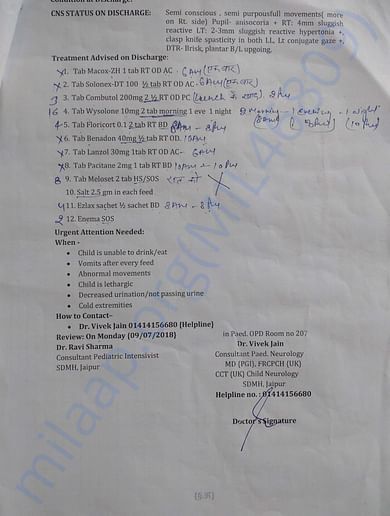 Condition at Discharge:
CNS STATUS ON DISCHARGE: Semi conscious , semi purpousfull movements( more
on Rt. side) Pupil- anisocoria + RT: 4mm sluggish
reactive LT: 2-3mm sluggish reactive hypertonia +,
clasp knife spasticity in both LL, Lt conjugate gaze +,
DTR- Brisk, plantar B/L upgoing.
Treatment Advised on Discharge:
1. Tab Macox-ZH 1 tab RT OD AC - 6AM
2. Tab Solonex-DT 100 ½ tab RT OD AC - 6AM
3. Tab Combutol 200mg 2 ½ RT OD PC
4. Tab Wysolone 10mg 2 tab morning 1 eve 1 night 2 morning - 1 evening - 1 night
5. Tab Floricort 0.1 2 tab RT BD 8AM - 8PM
6. Tab Benadon 40mg ½ tab RT OD. 10AM
7. Tab Lanzol 30mg 1tab RT OD AC- 6AM
8. Tab Pacitane 2mg 1 tab RT BD 10AM - 10PM
9. Tab Meloset 2 tab HS/SOS
10. Salt 2.5 gm in each feed
11. Ezlax sachet ½ sachet BD 8AM - 8PM
12. Enema SOS
Urgent Attention Needed:
When -
• Child is unable to drink/eat
• Vomits after every feed
• Abnormal movements
• Child is lethargic
• Decreased urination/not passing urine
• Cold extremities
How to Contact–
• Dr. Vivek Jain 01414156680 (Helpline)
Review: On Monday (09/07/2018) in Paed. OPD Room no 207
Dr. Ravi Sharma
Consultant Pediatric Intensivist
SDMH, Jaipur
Dr. Vivek Jain
Consultant Paed. Neurology
MD (PGI), FRCPCH (UK)
CCT (UK) Child Neurology
SDMH, Jaipur
Helpline no. : 01414156680
Doctor's Signature